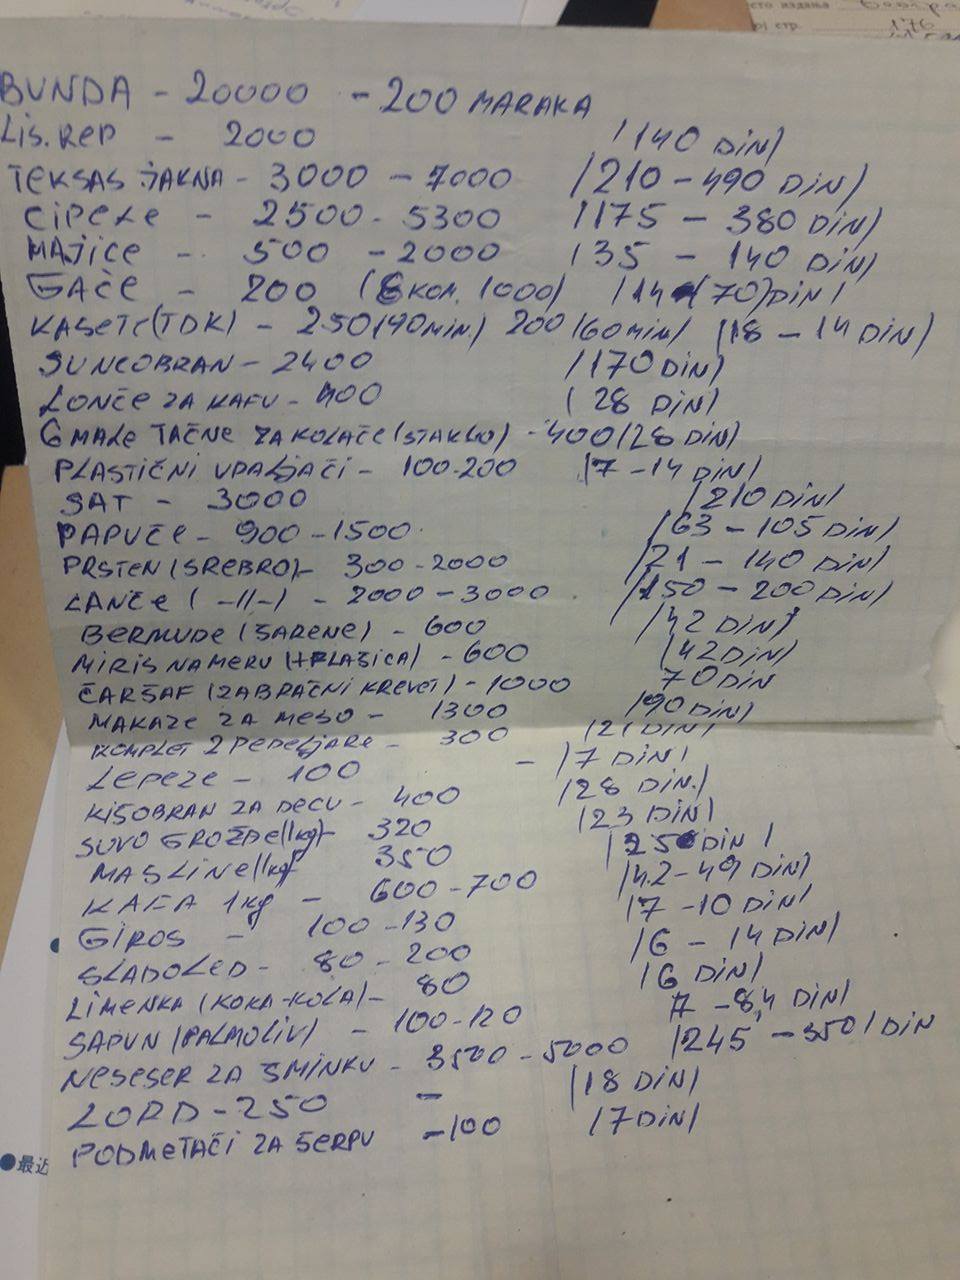 сто издања Београ
ој стр. 176
BUNDA - 20000 - 200 MARAKA
LIS. REP - 2000 /140 DIN/
TEKSAS JAKNA - 3000 - 7000 /210 - 490 DIN/
CIPELE - 2500 - 5300 /175 - 380 DIN/
MAJICE - 500 - 2000 /35 - 140 DIN/
GAĆE - 200 (6 KOM. 1000) /14 (70) DIN/
KASETE (TDK) - 250 (90 MIN.) 200 (60 MIN) /18 - 14 DIN/
SUNCOBRAN - 2400 /170 DIN/
LONČE ZA KAFU - 400 /28 DIN/
6 MALE TAČNE ZA KOLAČE (STAKLO) - 400 /28 DIN/
PLASTIČNI UPALJAČI - 100-200 /7 - 14 DIN/
SAT - 3000 /210 DIN/
PAPUČE - 900 - 1500 /63 - 105 DIN/
PRSTEN (SREBRO) - 300 - 2000 /21 - 140 DIN/
LANČE ( -//- ) - 2000 - 3000 /150 - 200 DIN/
BERMUDE (ŠARENE) - 600 /42 DIN/
MIRIS NA MERU (+FLAŠICA) - 600 /42 DIN/
ČARŠAF (ZA BRAČNI KREVET) - 1000 70 DIN
MAKAZE ZA MESO - 1300 /90 DIN/
KOMPLET 2 PEPELJARE - 300 /21 DIN/
LEPEZE - 100 - /7 DIN/
KIŠOBRAN ZA DECU - 400 /28 DIN./
SUVO GROŽĐE (1kg) - 320 /23 DIN/
MASLINE (1kg) 350 /25 DIN/
KAFA 1kg - 600 - 700 /42 - 49 DIN/
GIROS - 100 - 130 /7 - 10 DIN/
SLADOLED - 80 - 200 /6 - 14 DIN/
LIMENKA (KOKA-KOLA) - 80 /6 DIN/
SAPUN (PALMOLIV) - 100-120 7 - 8,4 DIN/
NESESER ZA ŠMINKU - 3500 - 5000 /245 - 350/ DIN
LORD - 250 - /18 DIN/
PODMETAČI ZA ŠERPU - 100 /7 DIN/
●最近